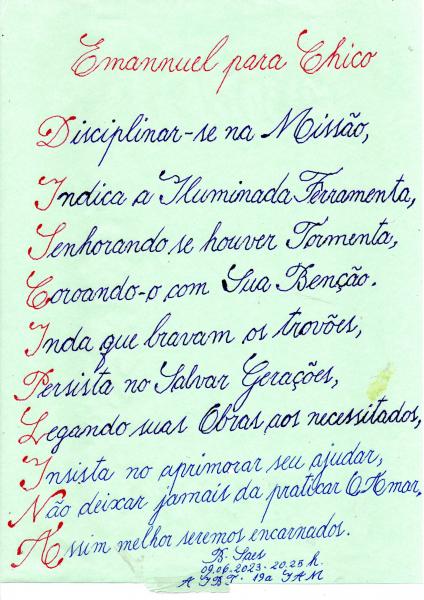 Emannuel para Chico
Disciplinar-se na Missão,
Indica a Iluminada Ferramenta,
Senhorando se houver Tormenta,
Coroando-o com Sua Benção.
Inda que bravam os trovões,
Persista no Salvar Gerações,
Legando suas Obras aos necessitados,
Insista no aprimorar seu ajudar,
Não deixar jamais da praticar O Amar,
Assim melhor seremos encarnados.
B. Saes
09.06.2023 - 20,25 h.
A IBT. 19a IAM